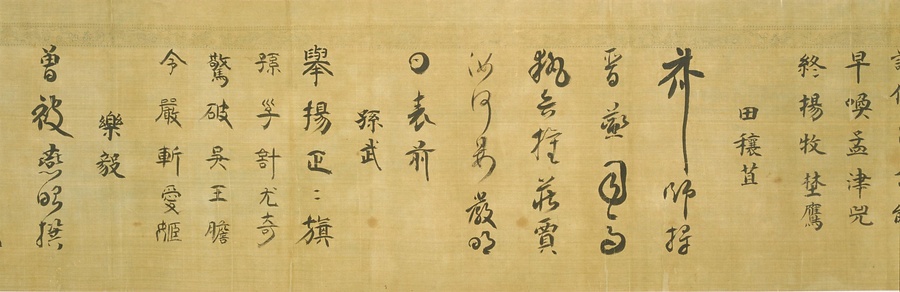 早喚孟津兕
終揚牧埜鷹
田穰苴
齊師捍
晉燕
執兵權莊賈
汝何晏嚴明
日表前
孫武
舉揚正〻旗
孫子計尤奇
驚破吳王膽
令嚴斬愛姬
樂毅
曾被燕昭撰